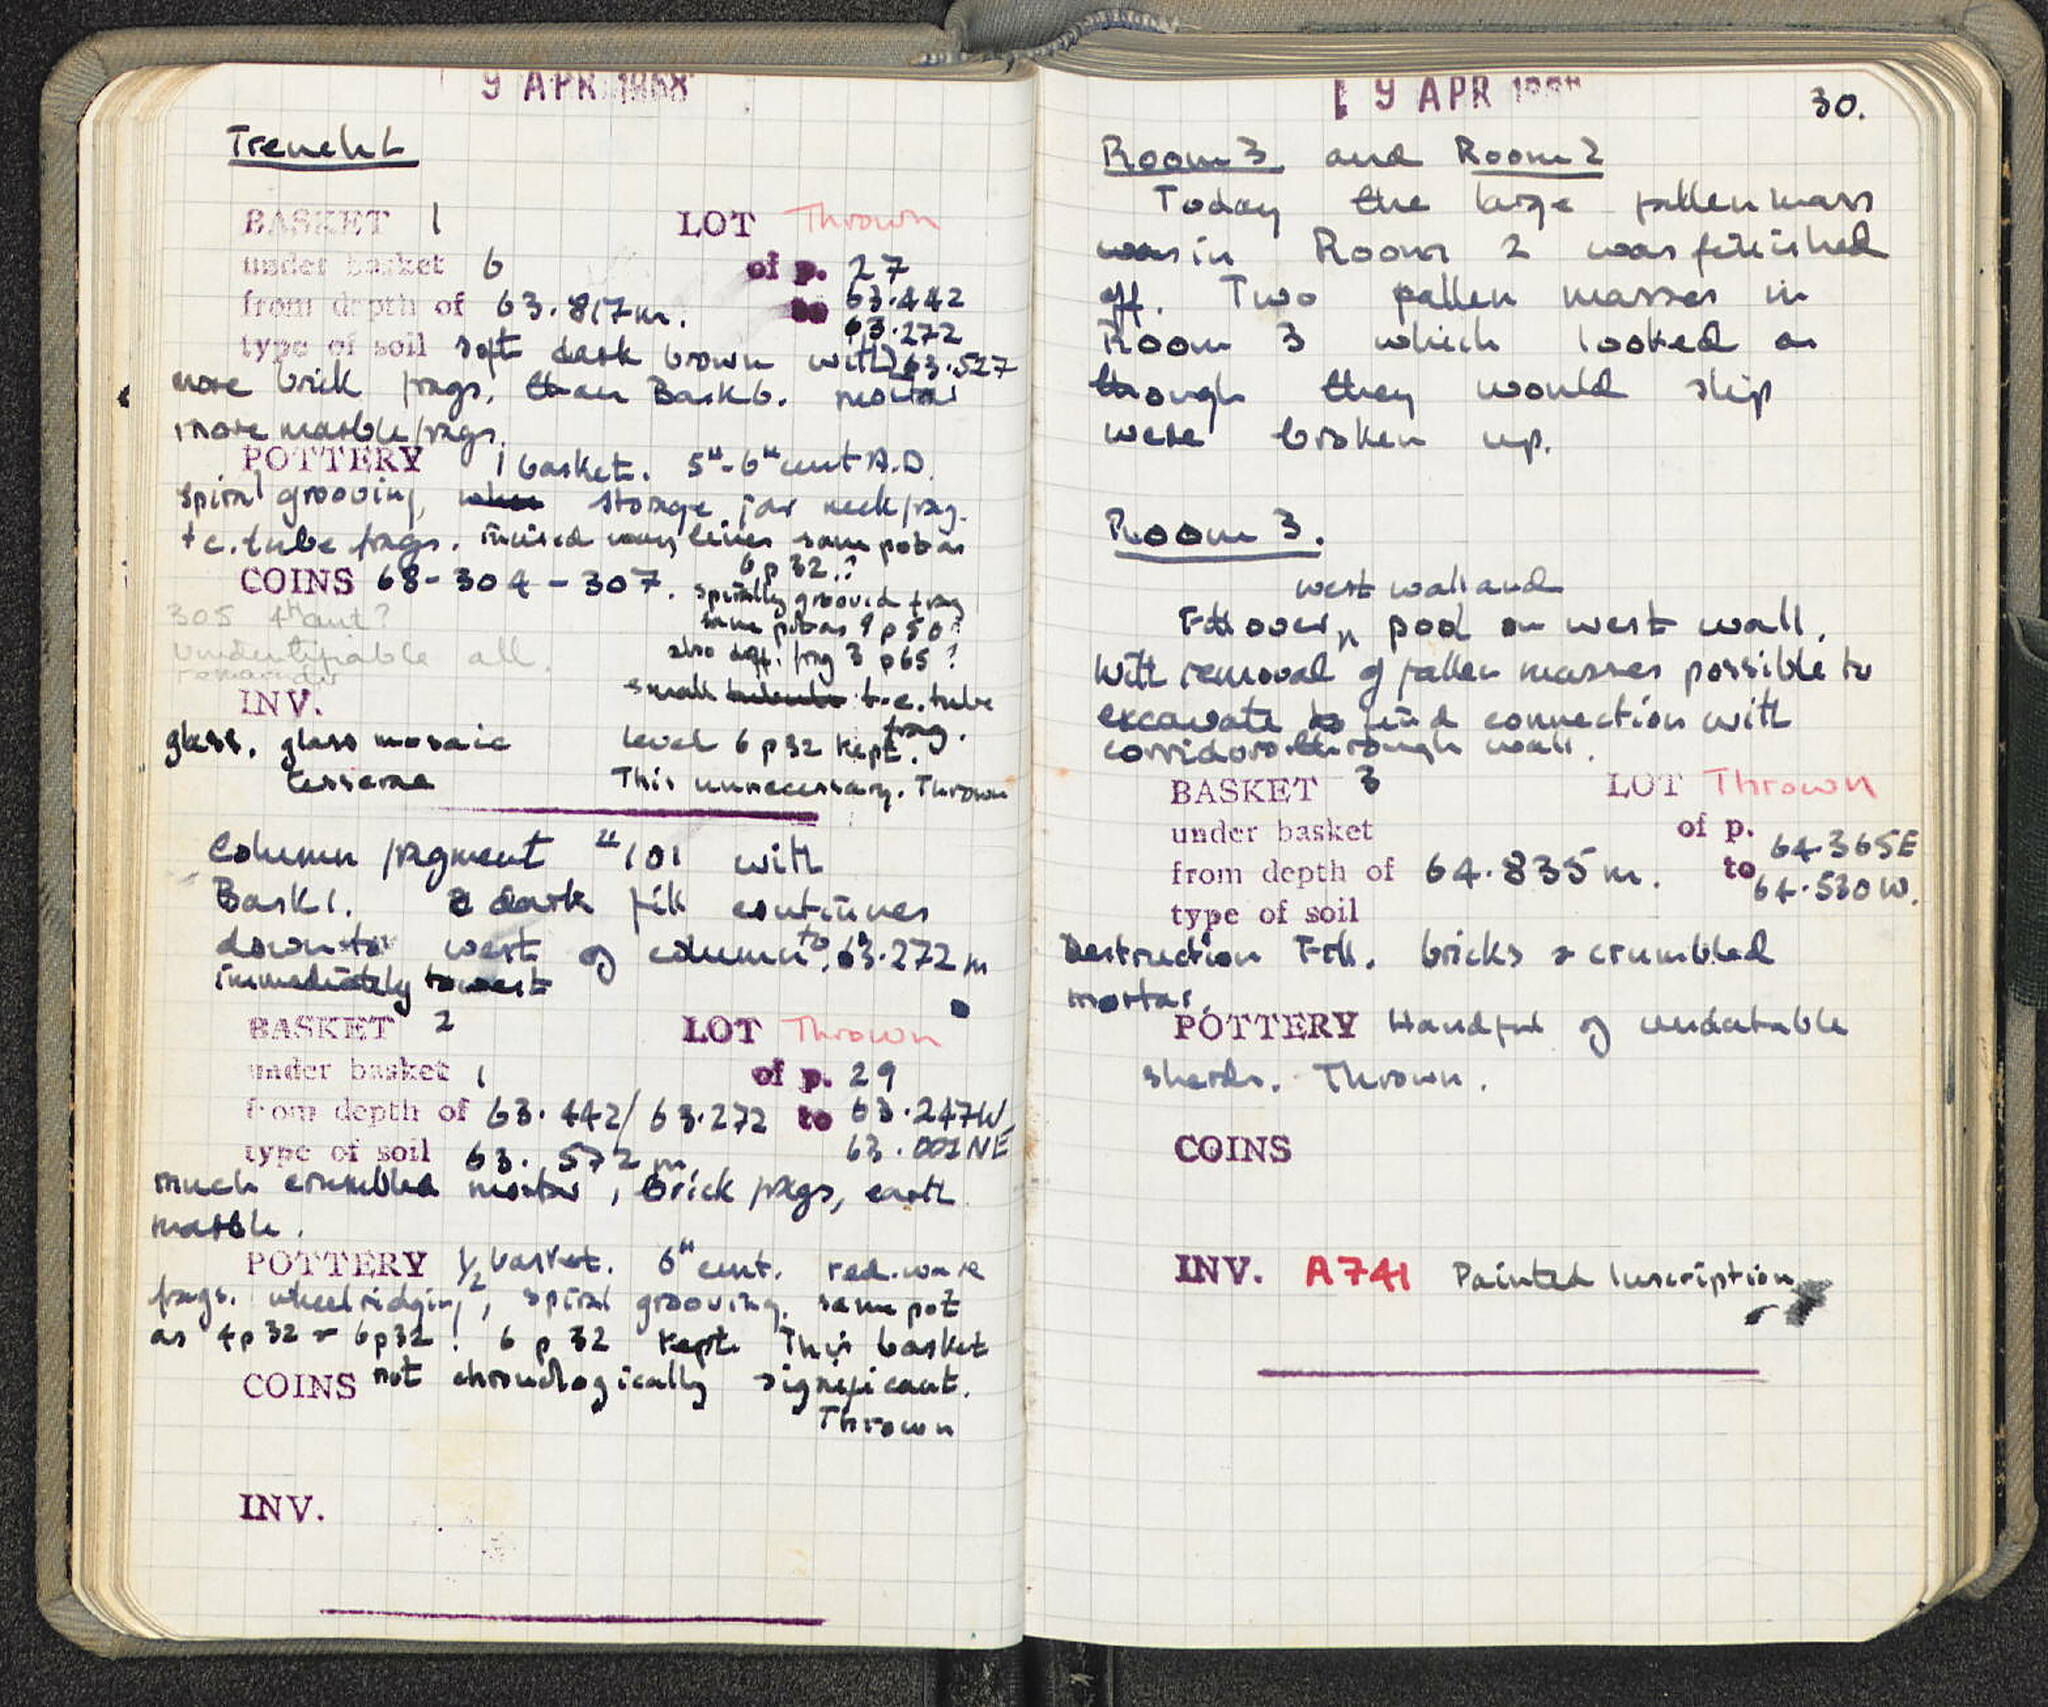 9 APR 1968
Trench L
BASKET 1 LOT Thrown
under basket 6 of p. 27
from depth of 63.817m. to 63.442
63.272
type of soil soft dark brown with 63.527
more brick frags. than Bask 6. mortar
more marble frags.
POTTERY 1 basket. 5"-6" cent A.D.
spiral grooving, storage jar neck frag.
t.c. tube frags. incised wavy lines same pot as
6 p 32.?
COINS 68-304-307. spirally grooved frag
305 4th cent? same pot as 9 p 50?
unidentifiable all. also diff. frag 3 p 65?
remainder
INV. small t.c. tube
frag.
glass. glass mosaic level 6 p 32 kept.
tesserae This unnecessary. Thrown
Column fragment #101 with
Bask 1. a dark fill continues
down to west of column to 63.272 m
immediately to west
BASKET 2 LOT Thrown
under basket 1 of p. 29
from depth of 63.442/63.272 to 63.247W
type of soil 63.572m. 63.002NE
much crumbled mortar, brick frags, earth
marble.
POTTERY 1/2 basket. 6" cent. red-ware
frags. wheelridging, spiral grooving. same pot
as 4p32 & 6p32! 6 p 32 kept. This basket
COINS not chronologically significant.
Thrown
INV.
19 APR 1968
30.
Room 3 and Room 2
Today the large fallen mass
was in Room 2 was finished
off. Two fallen masses in
Room 3 which looked as
though they would slip
were broken up.
Room 3.
west wall and
Fill over pool on west wall.
With removal of fallen masses possible to
excavate to find connection with
corridor through wall.
BASKET 3 LOT Thrown
under basket of p.
64.365E
from depth of 64.835m. to 64.530W.
type of soil
Destruction Fill. bricks & crumbled
mortar.
POTTERY Handful of undatable
sherds. Thrown.
COINS
INV. A741 Painted Inscription